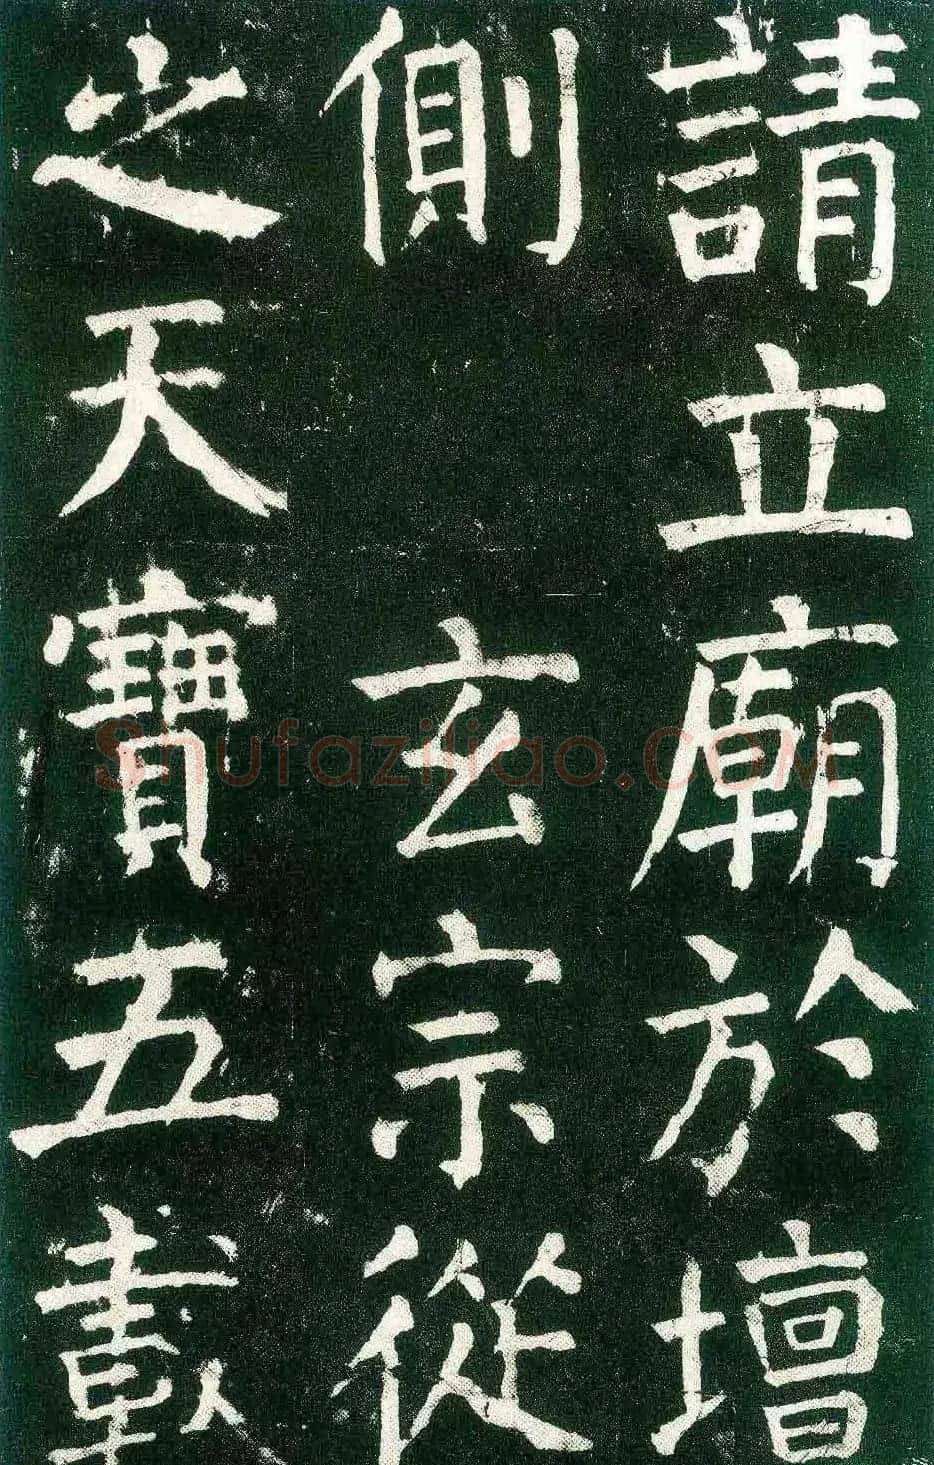 請立廟於壇
側 玄宗從
之天寶五載
Shufaziliao.com